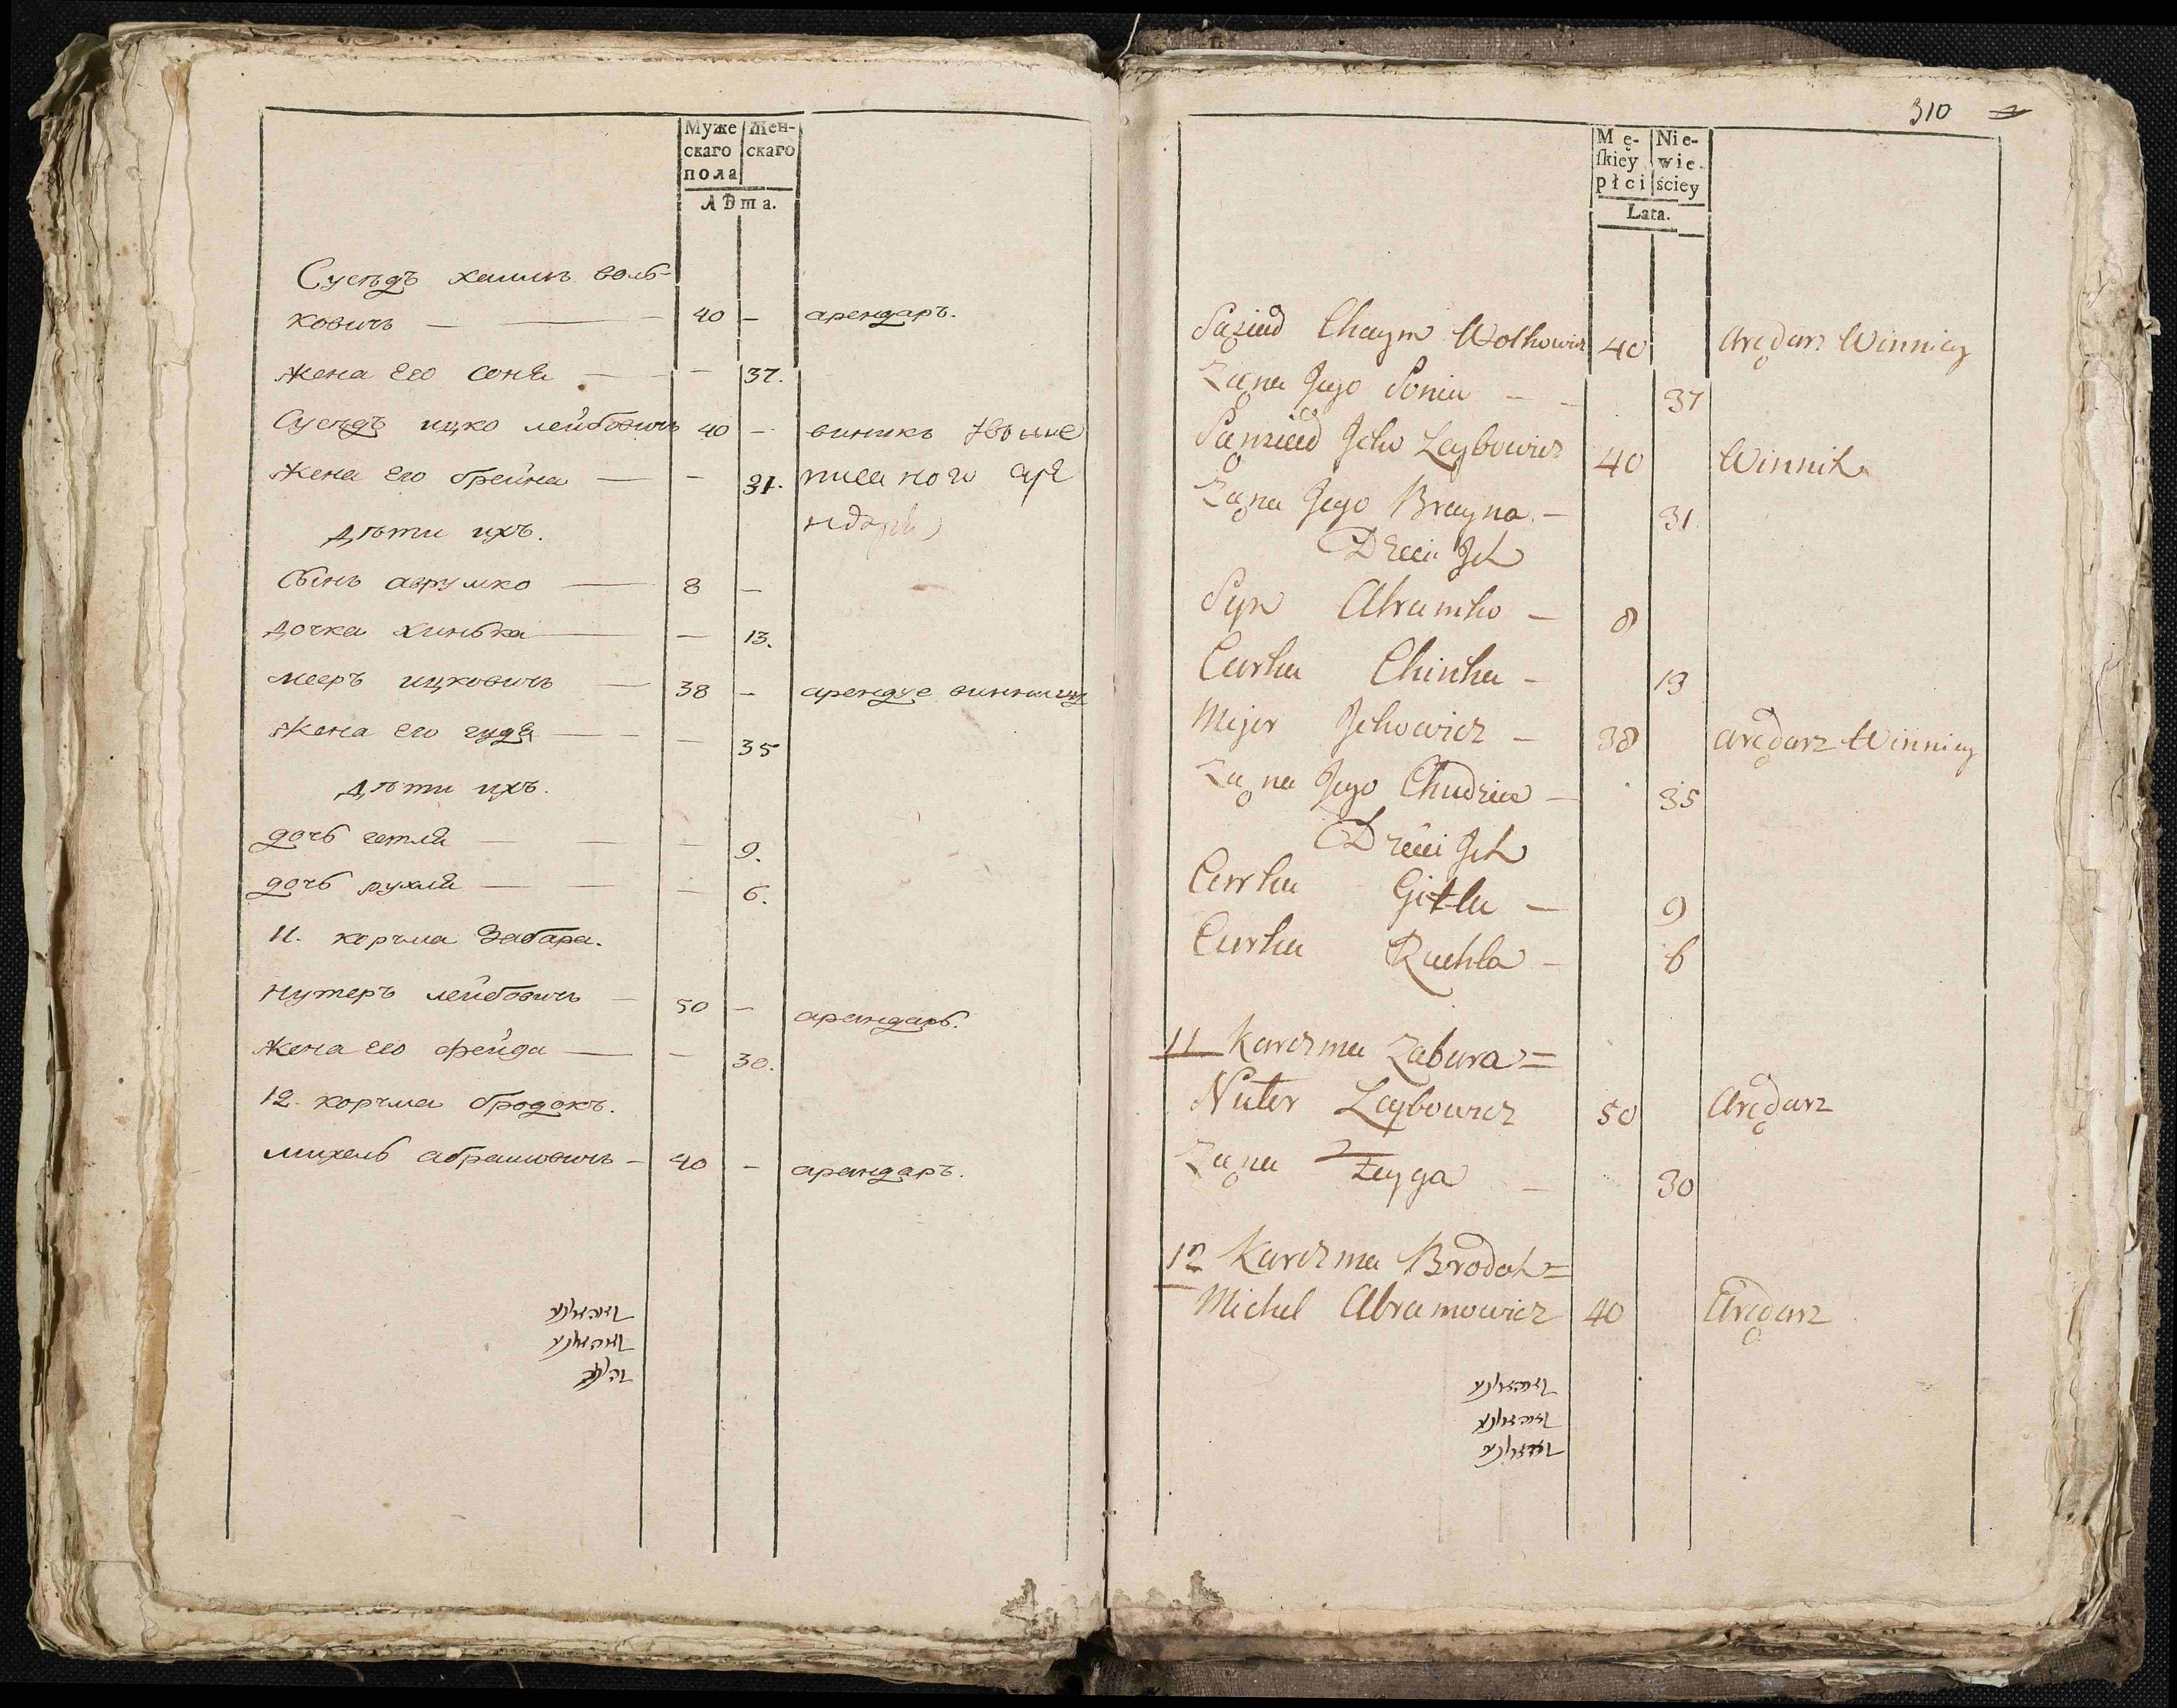 Муже
скаго
пола
Жен-
скаго
лѣта.
Сусѣдъ хаимъ воль-
ковичъ — — 40 — арендаръ.
жена его соня — — 37.
Сусѣдъ ицко лейбовичъ 40 — виникъ
жена его брейна — — 31.
дѣти ихъ.
Сынъ аврумко — 8 —
дочка хинька — — 13.
мееръ ицковичъ — 38 — арендуе винницу
жена его худя — — — 35
дѣти ихъ.
дочь гетля — — — 9.
дочь рухля — — — 6.
11. корчма Забара.
Нутеръ лейбовичъ — 50 — арандарь.
жена его фейга — — 30.
12. корчма бродокъ.
михель абрамовичъ — 40 — арандаръ.
310
Mę-
ſkiey
płci
Nie-
wie-
ściey
Lata.
Sąziad Chaym Wolkowicz 40 Arędarz Winnicy
Zona Jego Sonia — — 37
Sąnziad Icko Leybowicz 40 Winnik
Zona Jego Brayna — 31
Dzieci Ich
Syn Abramko — 8
Curka Chinka — 13
Mejer Ickowicz — 38 arędarz Winnicy
Zona Jego Chudzia — 35
Dzieci Ich
Curka Gitla — 9
Curka Ruchla — 6
11 Karczma Zabara =
Nuter Leybowicz 50 Arędarz
Zona Feyga — 30
12 Karczma Brodok =
Michel Abramowicz 40 Arędarz